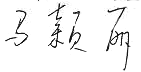 马颖丽